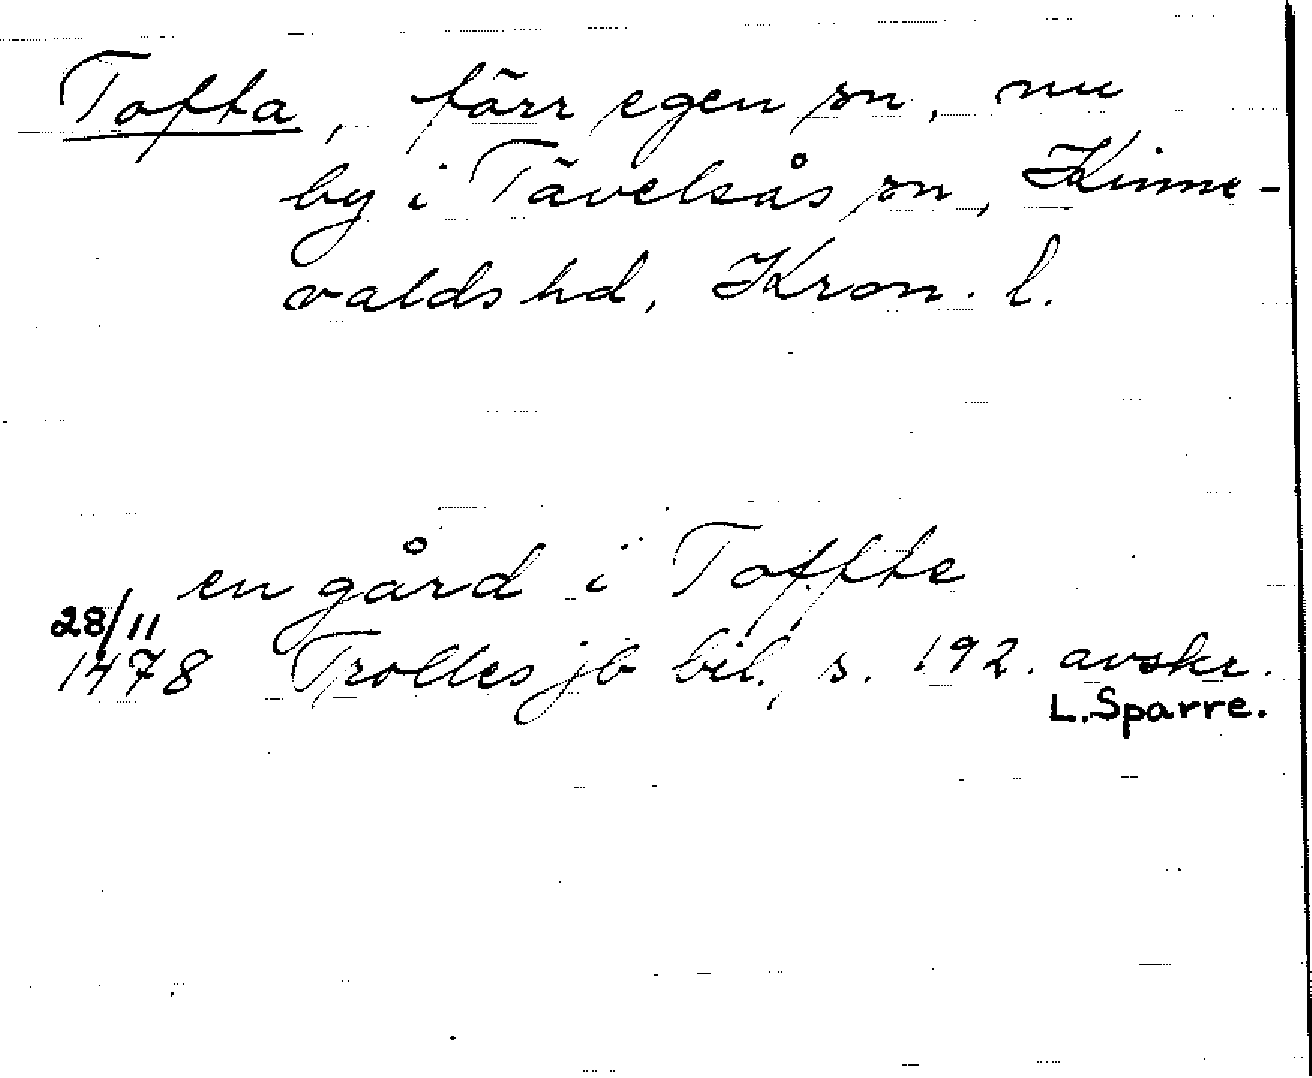 Tofta, förr egen sn, nu
by i Tävelsås sn, Kinne-
valds hd, Kron. l.
en gård i Toffte
28/11
1478 Trolles jb bil., s. 192. avskr.
L. Sparre.